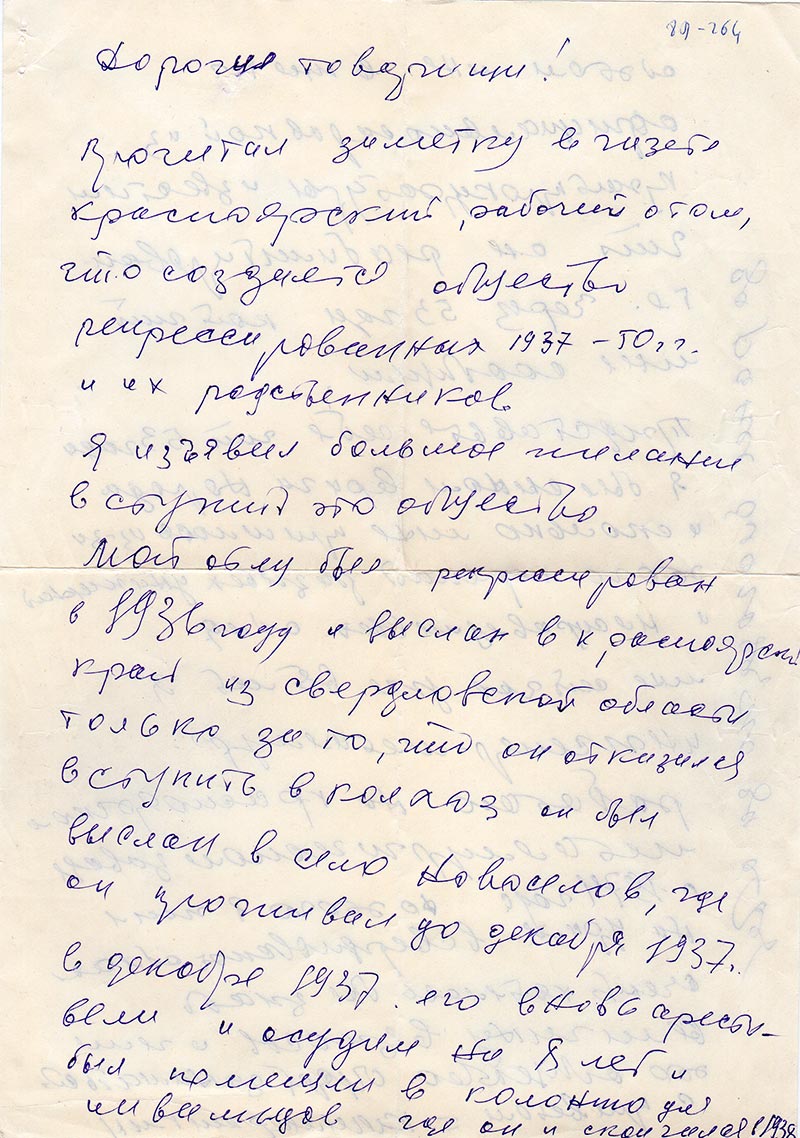 89-264
Дорогие товарищи!
Прочитал заметку в газете
красноярский рабочий о том,
что создается общество
репрессированных 1937-50 гг.
и их родственников
Я изъявил большое желание
вступит это общество.
Мой отец был репрессирован
в 1936 году и выслан в красноярский
край из свердловской области
только за то, что он отказался
вступить в колхоз он был
выслан в село Новоселов, где
он проживал до декабря 1937.
в декабре 1937. его вновь аресто-
вали и осудили на 8 лет и
был помещен в колонию для
инвалидов где он и скончался в 1938